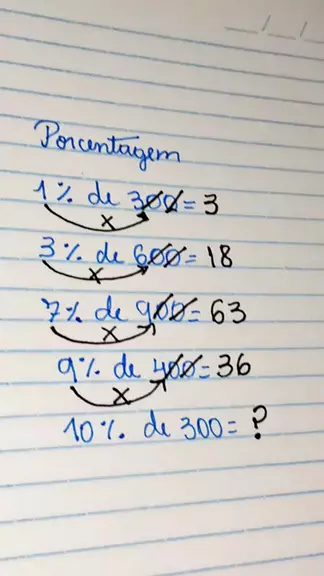 Porcentagem
1% de 300 = 3
x
3% de 600 = 18
x
7% de 900 = 63
x
9% de 400 = 36
x
10% de 300 = ?